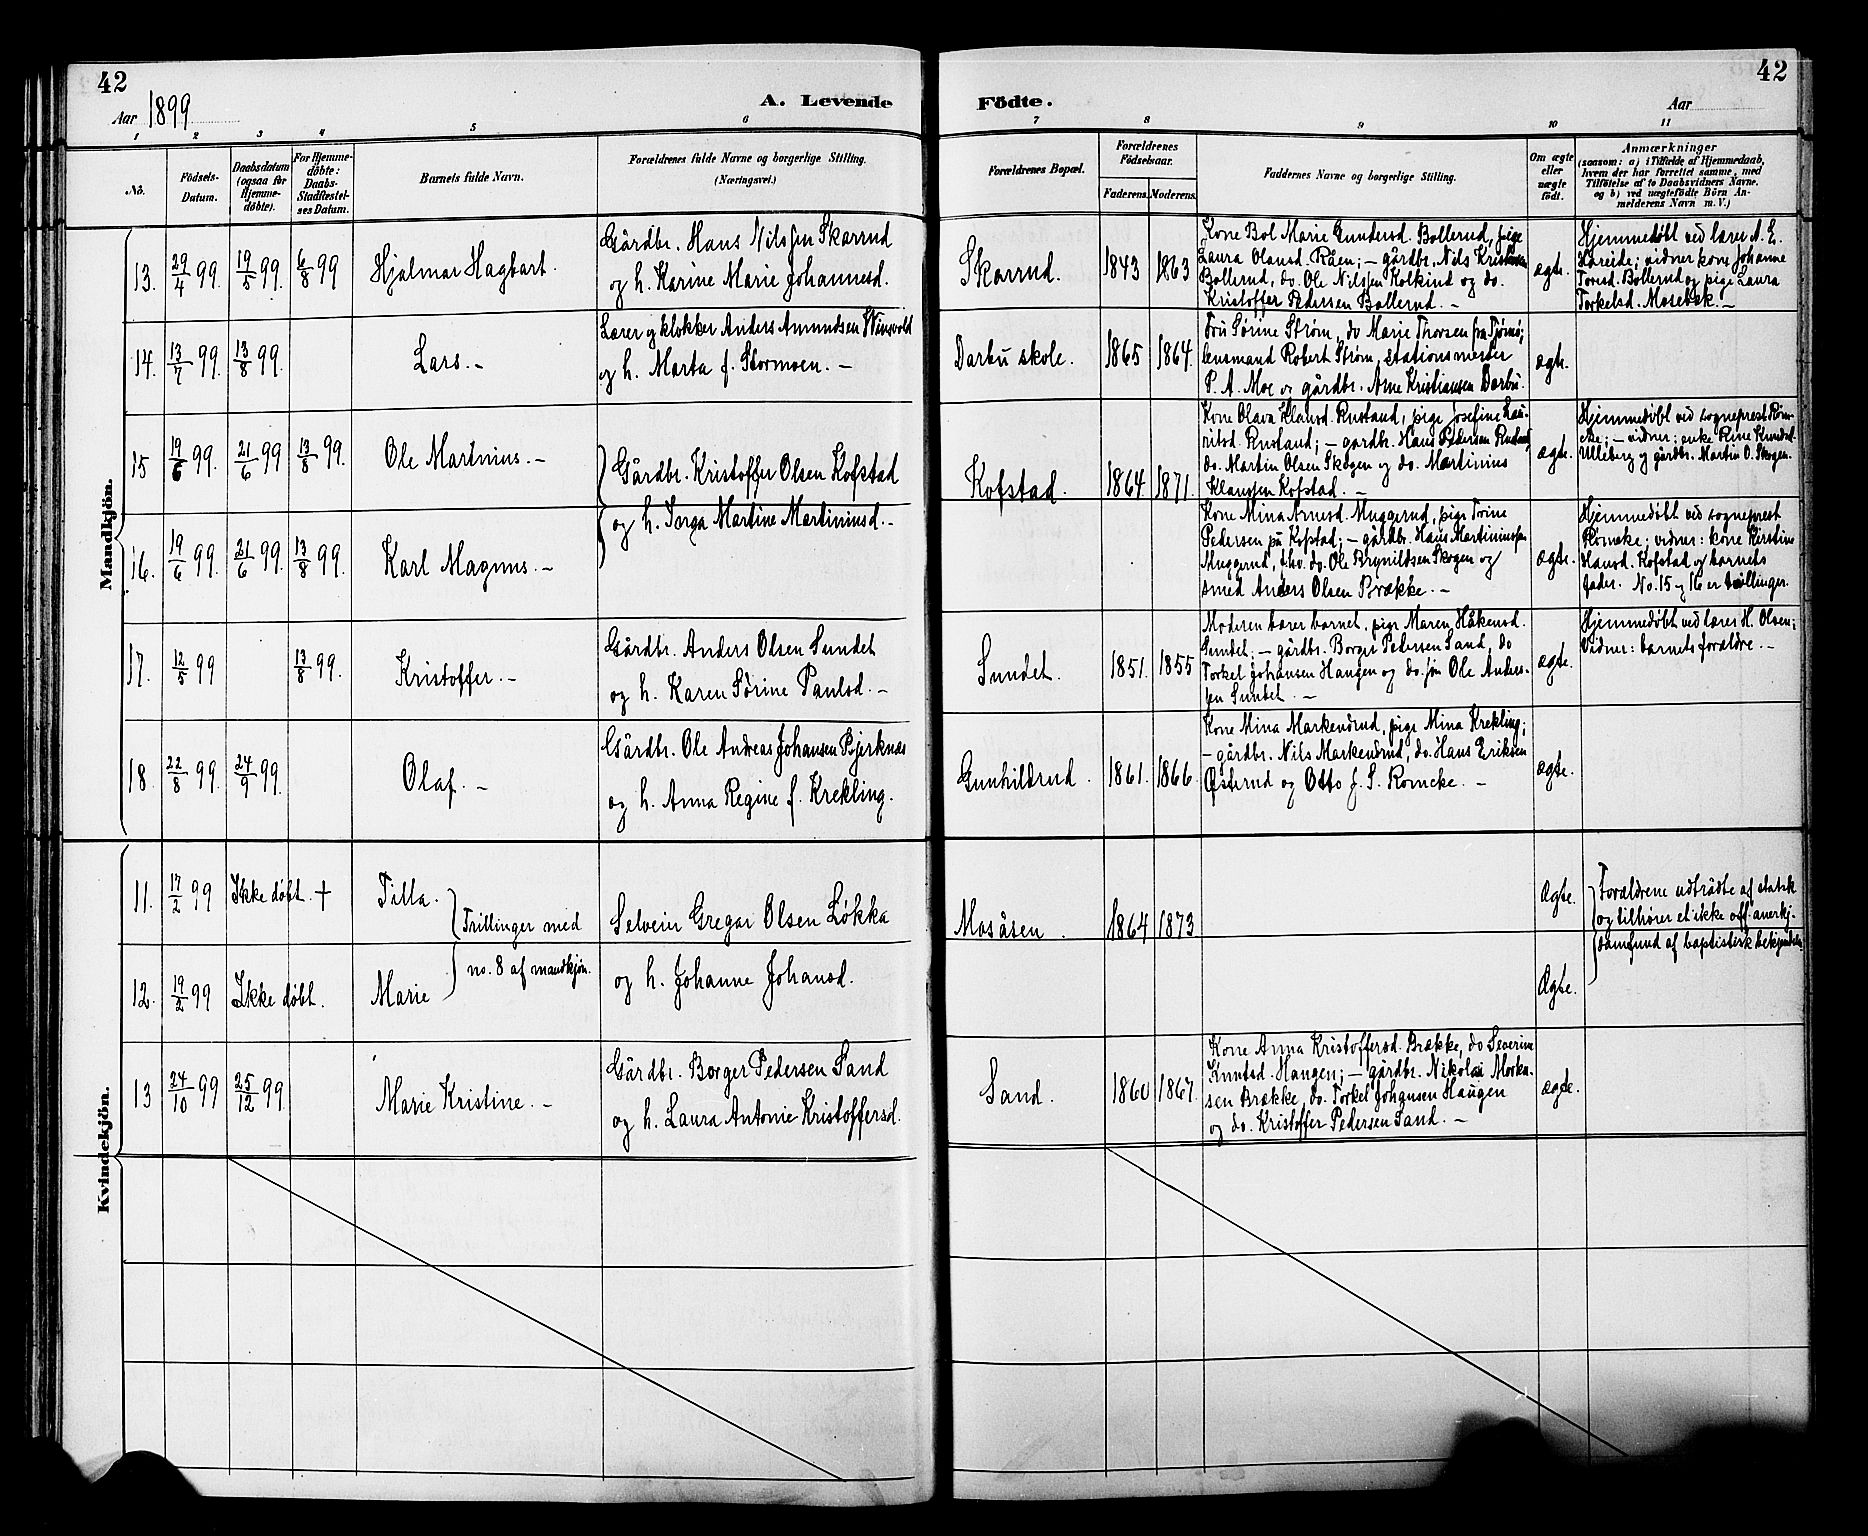 42
Aar 1899
A. Levende
1 2 3 4 5 6
No.
Födsels-
Datum.
Daabsdatum
(ogsaa for
Hjemme-
döbte).
For Hjemme-
döbte:
Daabs-
Stadfæstel-
ses Datum.
Barnets fulde Navn.
Forældrenes fulde Navne og borgerlige Stilling.
(Næringsvei.)
Mandkjön.
13. 29/4 99. 19/5 99. 6/8 99 Hjalmar Hagbart.
Gårdbr. Hans Nilssen Skarrud
og h. Karine Marie Johannesd.
14. 13/7 99. 13/8 99. Lars. –
Lærer og klokker Anders Amundsen
og h. Marta f. Stormoen. –
15 19/6 99. 21/6 99 13/8 99. Ole Martinius. –
Gårdbr. Kristoffer Olsen Kofstad
og h. Inga Martine Martiniusd. –
16. 19/6 99. 21/6 99. 13/8 99. Karl Magnus. –
17. 12/5 99 13/8 99. Kristoffer. –
Gårdbr. Anders Olsen Sundet
og h. Karen Sørine Paulsd. –
18. 22/8 99. 24/9 99. Olaf. –
Gårdbr. Ole Andreas Johansen Bjerknæs
og h. Anna Regine f. Krekling.
Kvindekjön.
11. 17/2 99 Ikke døbt. † Tilla.
Trillinger med
no. 8 af mandkjøn.
Selveier Gregar Olsen Løkka
og h. Johanne Johansd.
12. 19/2 99 Ikke døbt. Marie
13 24/10 99 25/12 99. Marie Kristine. –
Gårdbr. Borger Pedersen Sand
og h. Laura Antonie Kristoffersd.
42
Födte.
Aar
7 8 9 10 11
Forældrenes Bopæl.
Forældrenes
Födselsaar.
Faderens. Moderens.
Faddernes Navne og borgerlige Stilling.
Om ægte
eller
uægte
födt.
Anmærkninger
(saasom: a) i Tilfælde af Hjemmedaab,
hvem der har forrettet samme, med
Tilföielse af to Daabsvidners Navne,
og b) ved uægtefödte Börn An-
melderens Navn m. V.)
Skarrud. 1843 1863
Kone Bol Marie Gundersd. Bollerud, pige
Laura Olausd. Råen; – gårdbr. Nils Kristensen
Bollerud, do. Ole Nilssen Kolkind og do.
Kristoffer Pedersen Bollerud. –
ægte.
Hjemmedøbt ved lærer A. E.
Hareide; vidner kone Johanne
Torsd. Bollerud og pige Laura
Torkelsd. Mosebæk. –
Darbu skole. 1865 1864.
Fru Sørine Strøm, do Marie Thorsen fra Tjømø;
lensmand Robert Strøm, stationsmester
P. A. Moe og gårdbr. Arne Kristiansen Darbu.
ægte.
Kofstad. 1864 1871.
Kone Olava Klausd. Rustand, pige Josefine Lau-
ritsd. Rustand; – gårdbr. Hans Pedersen Rustand,
do. Martin Olsen Skogen og do. Martinius
Klaussen Kofstad. –
ægte.
Hjemmedøbt ved sogneprest Røm-
cke; – vidner: enke Rine Knudsd.
Ulleberg og gårdbr. Martin O. Skogen.
Kone Mina Arnesd. Muggerud, pige Trine
Pedersen på Kofstad; – gårdbr. Hans Martiniussen
Muggerud, do. Ole Brynildsen Skogen og
smed Anders Olsen Brække. –
ægte.
Hjemmedøbt ved sogneprest
Rømcke; vidner: kone Kerstine
Hansd. Kofstad og barnets
fader. No. 15 og 16 er tvillinger.
Sundet. 1851. 1855
Moderen bærer barnet, pige Maren Håkensd.
Sundet; – gårdbr. Borger Pedersen Sand, do
Torkel Johansen Haugen og do. søn Ole Anders-
sen Sundet. –
ægte.
Hjemmedøbt ved lærer H. Olsen;
Vidner: barnets forældre. –
Gunhildrud. 1861. 1866.
Kone Mina Markendrud, pige Mina Krekling;
– gårdbr. Nils Markendrud, do. Hans Eriksen
Østerud og Otto J. S. Romcke. –
ægte.
Mosåsen. 1864 1873
Ægte.
Forældrene udtrådte af statsk.
og tilhører et ikke off. anerkj.
samfund af baptistisk bekjendelse
Ægte.
Sand. 1860 1867.
Kone Anna Kristoffersd. Brække, do Severine
Knutsd. Haugen; – gårdbr. Nikolai Marku-
sen Brække, do. Torkel Johansen Haugen
og do. Kristoffer Pedersen Sand. –
ægte.